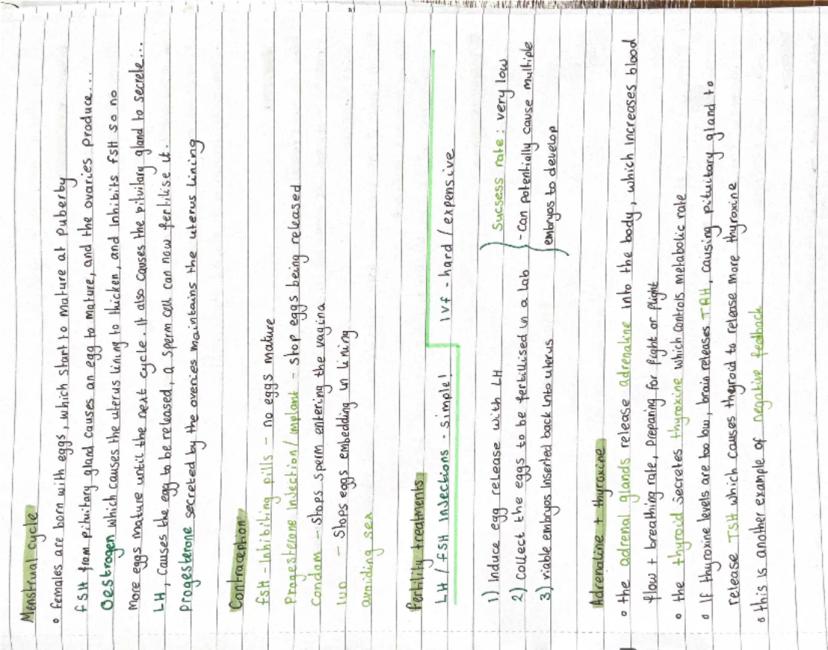 Menstrual cycle
• Females are born with eggs, which start to mature at Puberby
FSH from pituitary gland causes an egg to mature, and the ovaries produce...
Oestrogen which causes the uterus lining to thicken, and inhibits FSH so no
more eggs mature until the next cycle. It also causes the pituitary gland to secrete...
LH, causes the egg to be released, a sperm cell can now fertilise it.
Progesterone secreted by the overies maintains the uterus lining
Contraception
FSH-Inhibiting pills - no eggs mature
Progesterone Injection/Implant - stop eggs being released
Condom - stops sperm entering the vagina
IUD - stops eggs embedding in lining
avoiding sex
Fertility treatments
LH / FSH Injections - simple!
IVF - hard / expensive
1) Induce egg release with LH
2) Collect the eggs to be fertillised in a lab
3) viable embryos inserted back into uterus
Sucsess rate: very low
- Can potentially cause multiple
embryos to develop
Adrenaline + thyroxine
• the adrenal glands release adrenaline into the body, which increases blood
flow + breathing rate, preparing for fight or flight
• the thyroid secretes thyroxine which controls metabolic rate
• If thyroxine levels are too low, brain releases TRH, causing pituitary gland to
release TSH which causes thyroid to release more thyroxine
• this is another example of negative feedback